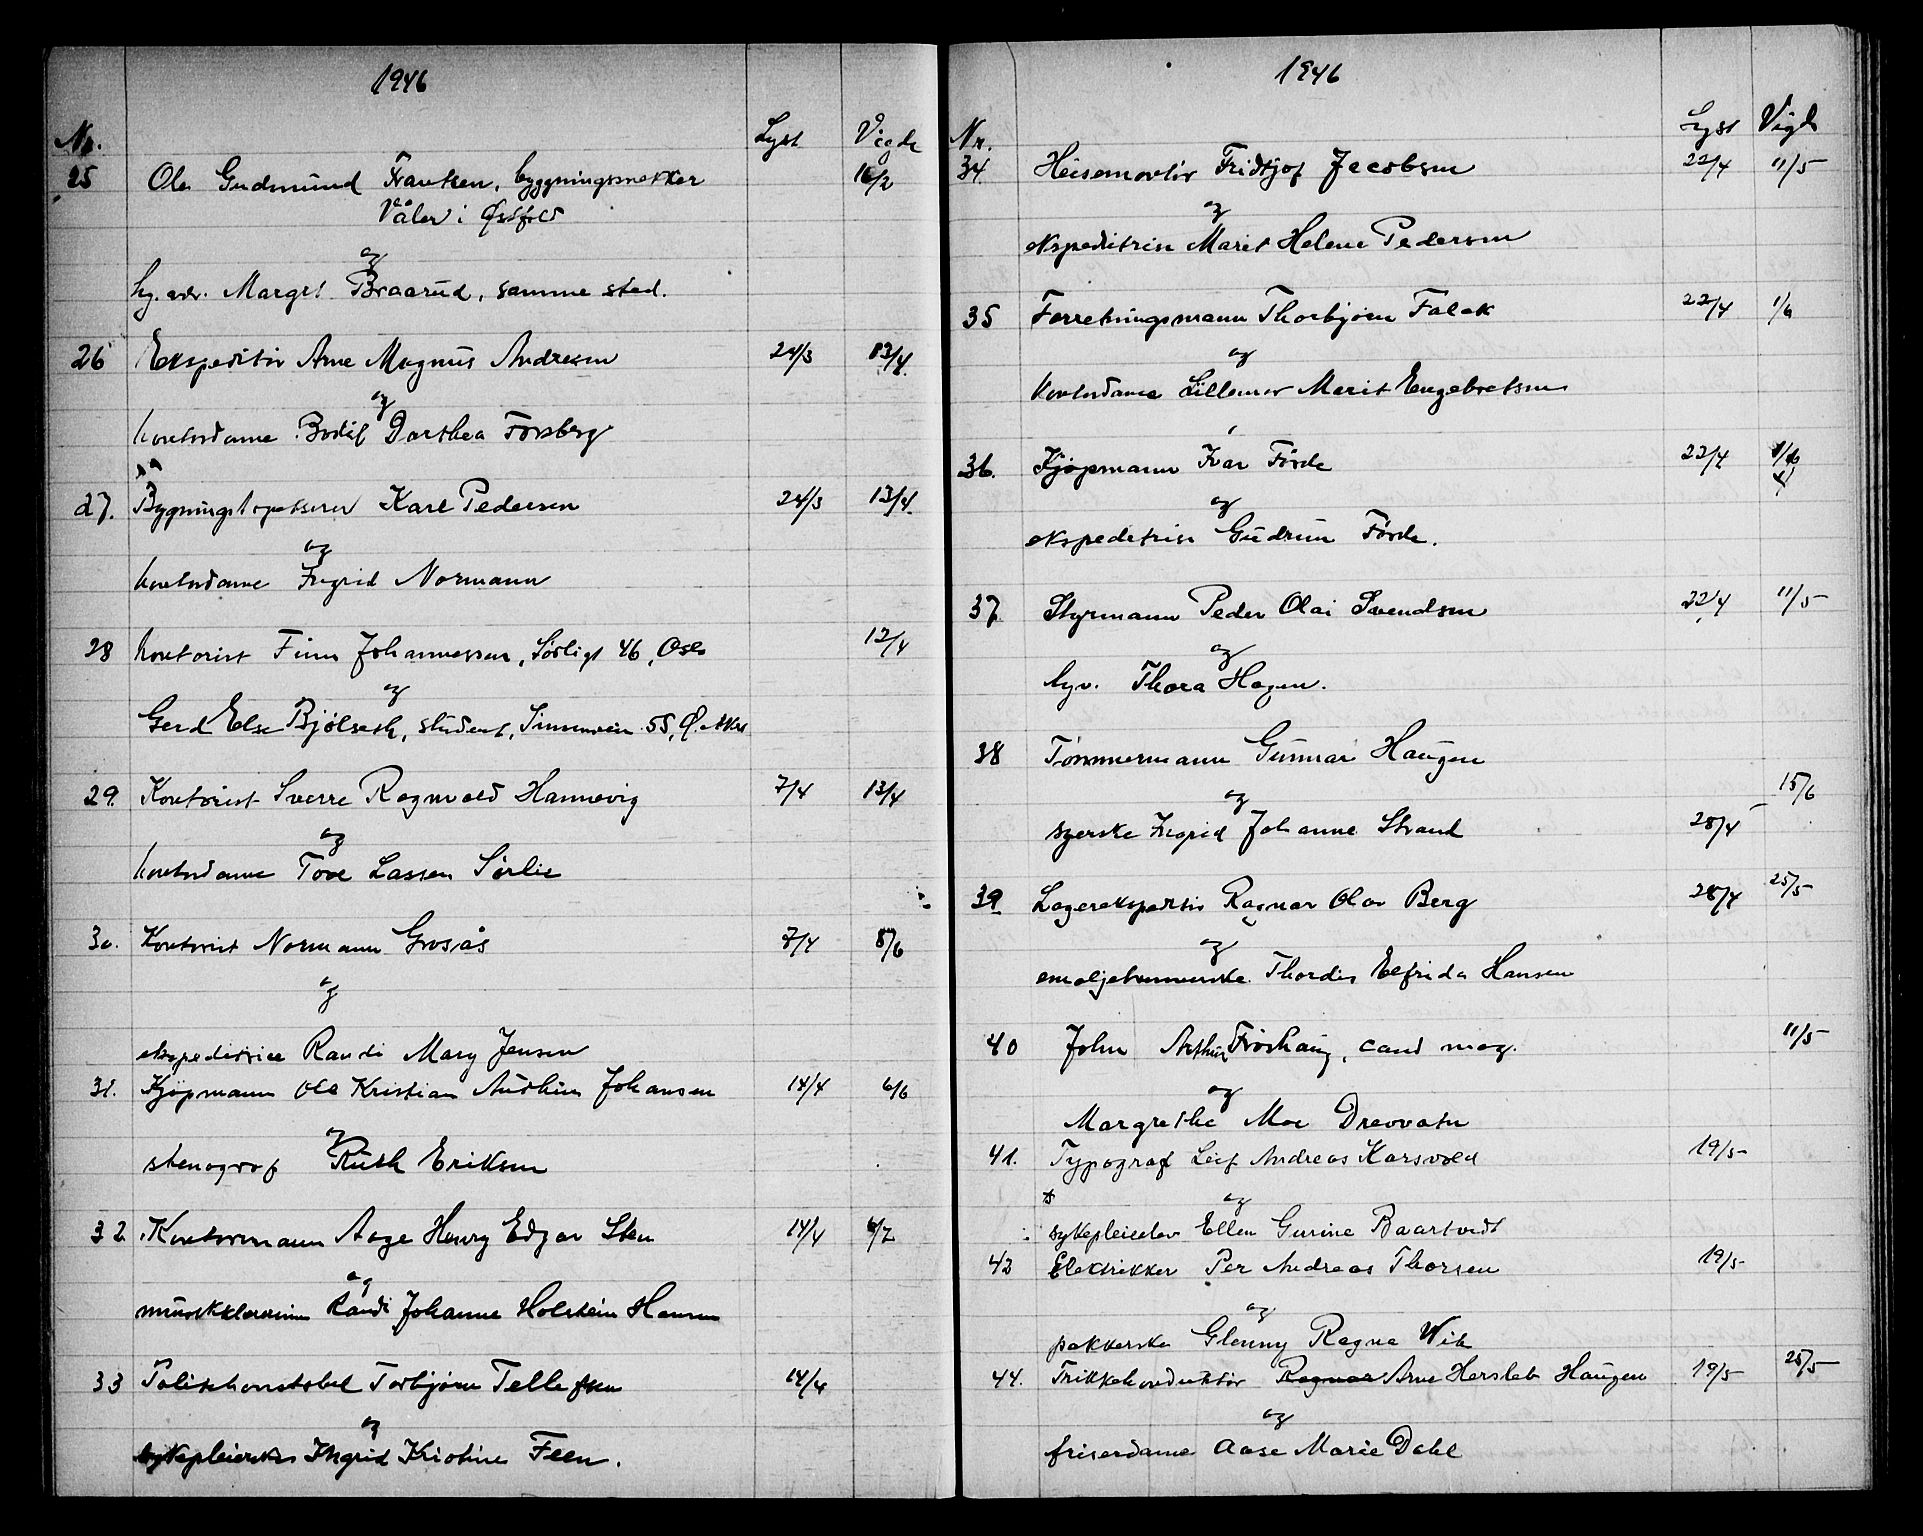 1946
Nr. Lyst Viede
25 Ole Gudmund Frantsen, byggningssnekker 16/2
Våler i Østfold
og
Margit Braarud, samme sted.
26 Ekspeditör Arne Magnus Andresen 24/3 13/4
og
kontordame Bodil Dorthea Forsberg
27. Bygningstapetserer Karl Pedersen 24/3 13/4
og
kontordame Ingrid Normann
28 kontorist Finn Johannessen, Sörligt 46, Oslo 12/4
og
Gerd Else Bjölseth, student, Sinsenveien 55, Ø. Aker
29. Kontorist Sverre Ragnvald Hannevig 7/4 13/4
og
kontordame Tove Lassen Sörlie
30. Kontorist Normann Grosås 7/4 8/6
og
ekspeditrice Randi Mary Jensen
31. Kjöpmann Ole Kristian Johansen 14/4 6/6
og
stenograf Ruth Eriksen
32 Kontormann Aage Henry Edgar Sten 14/4 6/7
og
Randi Johanne Holstein Hansen
33 Politikonstabel Torbjörn Tellefsen 14/4
og
sykepleierske Ingrid Kristine Feen.
1946
Nr. Lyst Vigd
34. Heisemontör Fridtjof Jacobsen 22/4 11/5
og
ekspeditrise Marit Helene Pedersen
35 Forretningsmann Thorbjörn Falck 22/4 1/6
og
kontordame Lillemor Marit Engebretsen
36. Kjöpmann Ivar Förde 22/4
og
ekspeditrise Gudrun Förde.
37 Styrmann Peder Olai Svendsen 22/4 11/5
og
Thora Hagen.
38 Tömmermann Gunnar Haugen
og 15/6
syerske Ingrid Johanne Strand 28/4
39 Lagerekspeditör Ragnar Olav Berg 28/4 25/5
og
Thordis Elfrida Hansen
40 John Arthur Fröshaug, cand mag. 11/5
og
Margrethe Moe Drevvatn
41. Typograf Leif Andreas Korsvold 19/5
og
sykepleieelev Ellen Gurine Baartvedt
43 Elektrikker Per Andreas Thorsen 19/5
og
pakkerske Glenny Ragna Wik
44. Trikkekonduktör Ragnar Arne Hersleb Haugen 19/5 25/5
og
friserdame Aase Marie Dahl